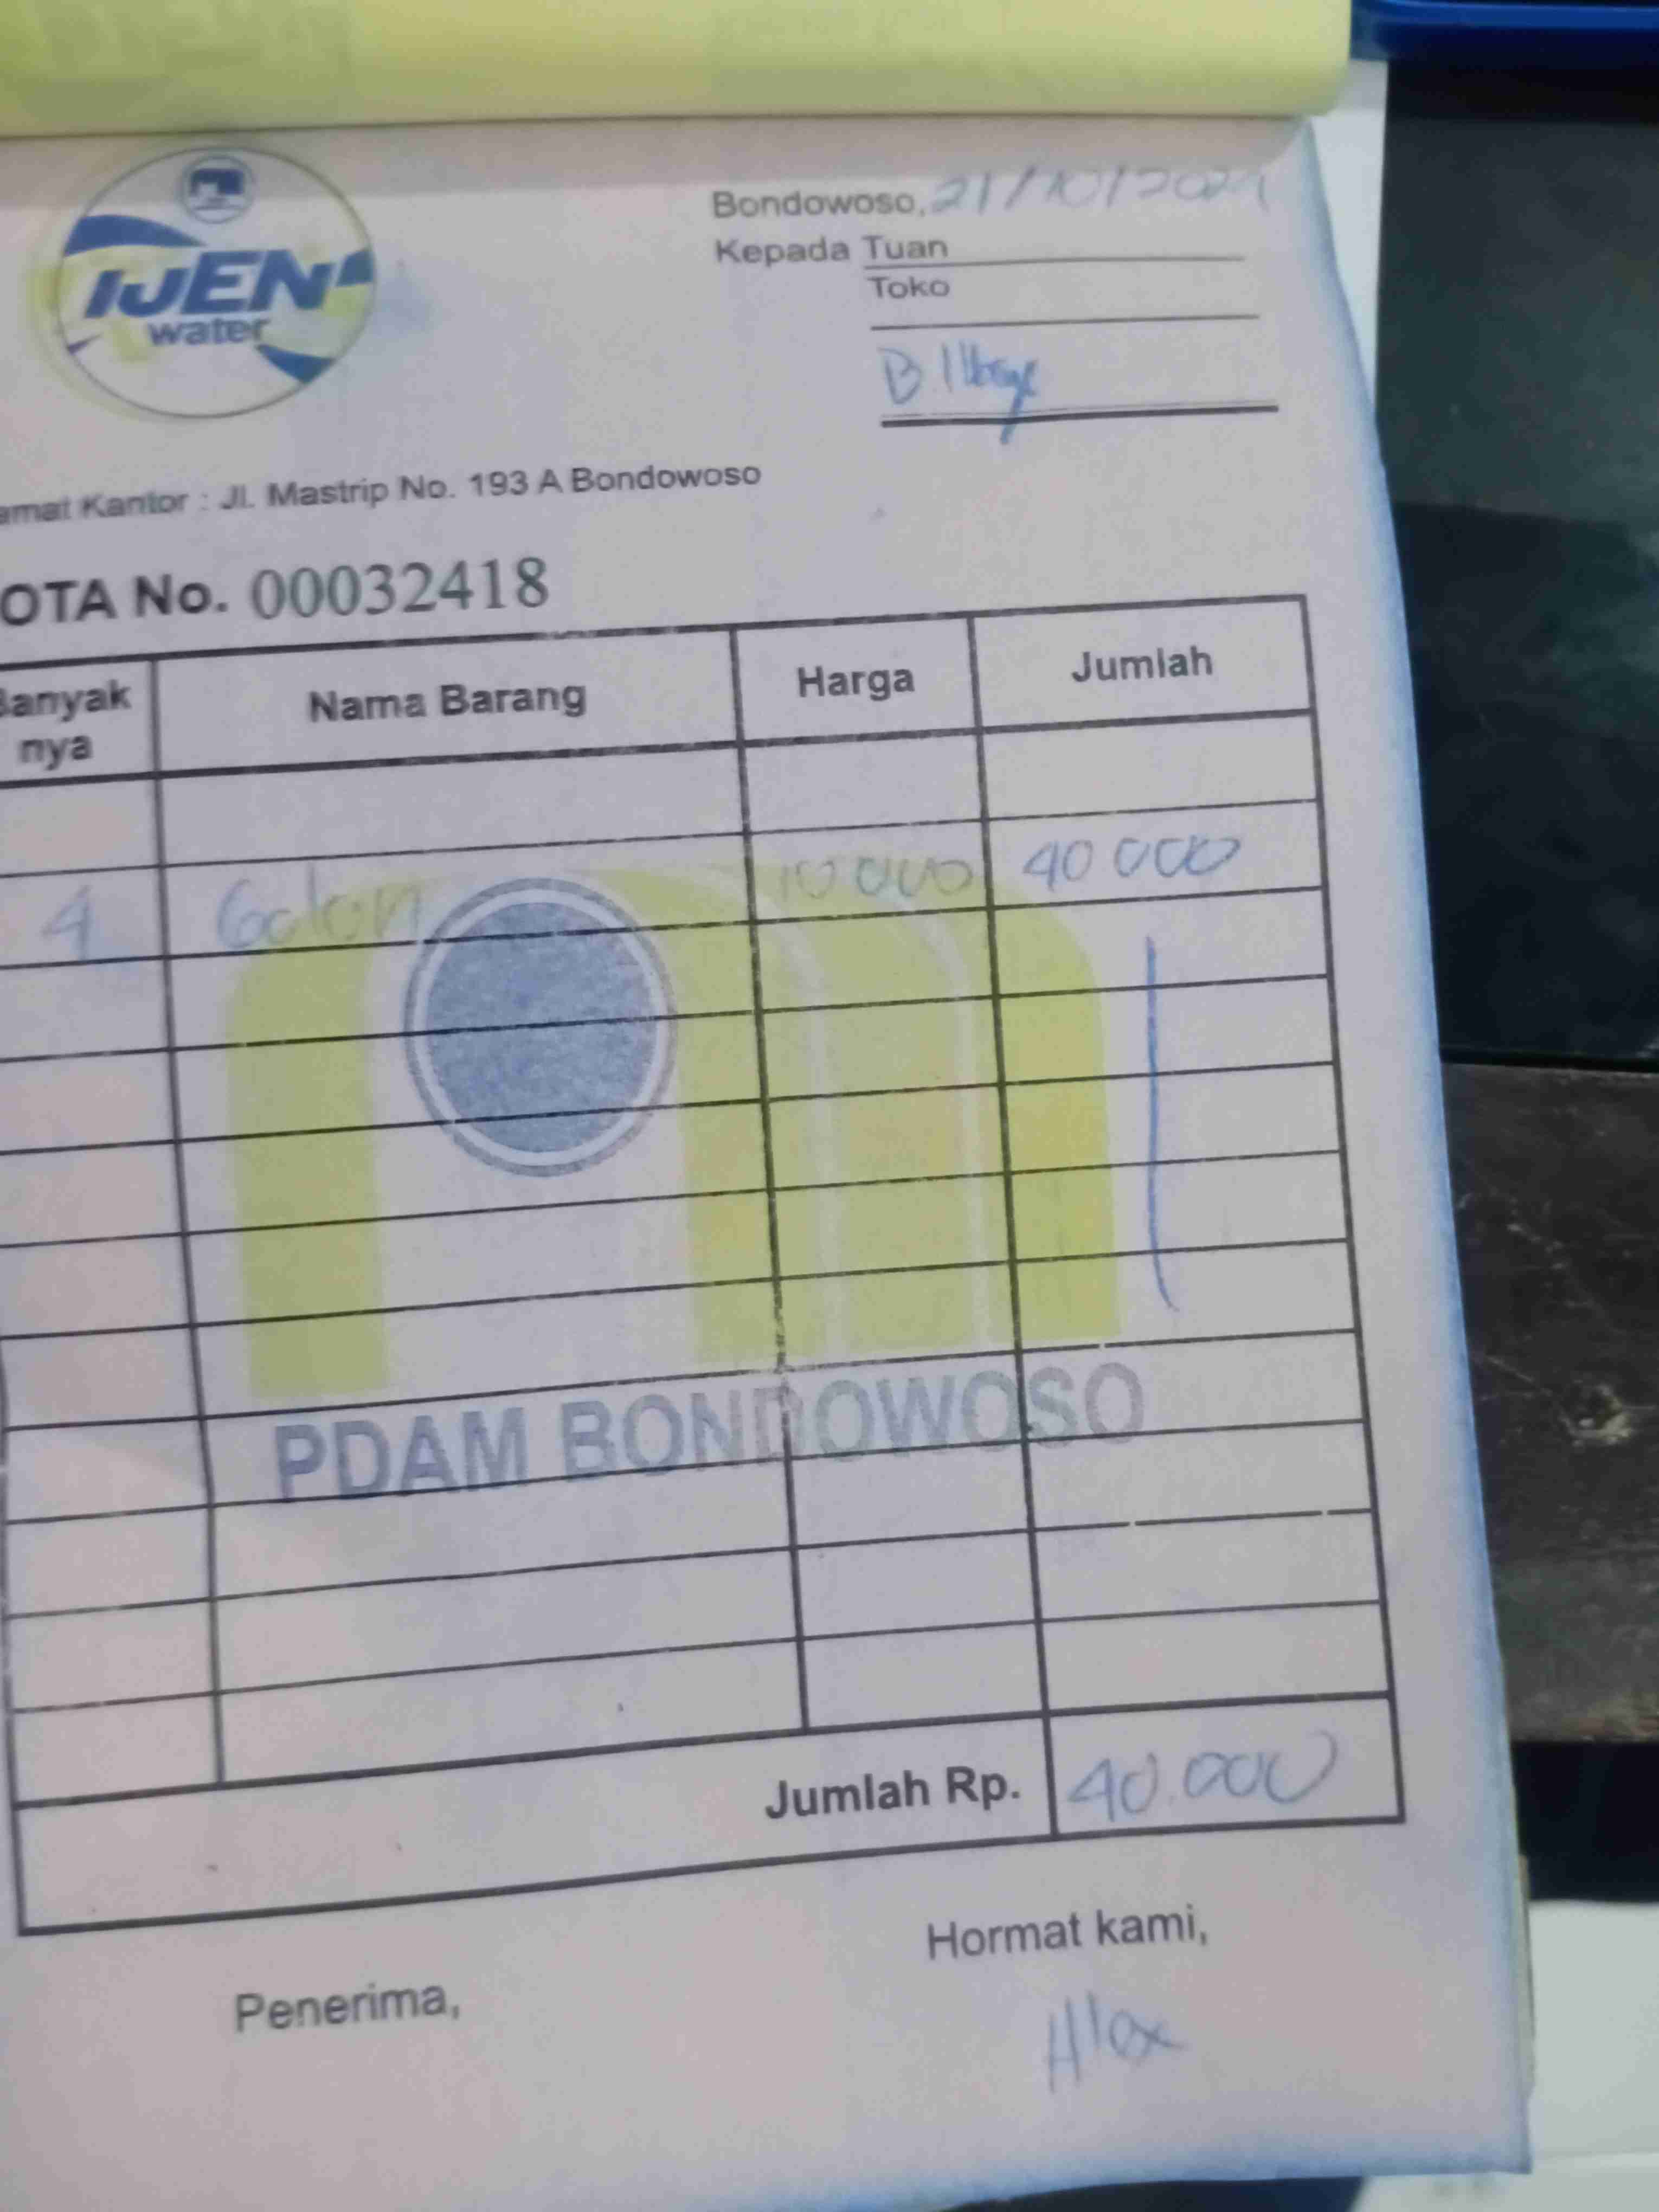 IJEN
water
Bondowoso, 21/10/2021
Kepada Tuan
Toko
B
amat Kantor : Jl. Mastrip No. 193 A Bondowoso
OTA No. 00032418
Banyak nya Nama Barang Harga Jumlah
4 Galon 10 000 40 000
PDAM BONDOWOSO
Jumlah Rp. 40.000
Hormat kami,
Penerima,
Alex